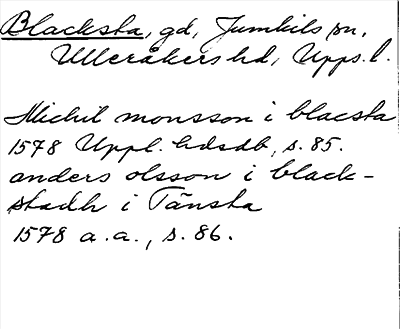 Blacksta, gd, Jumkils sn,
Ulleråkers hd, Upps. l.
Michil monsson i blacsta
1578 Uppl. hdsdb, s. 85.
anders olsson i black-
stadh i Tänsta
1578 a. a., s. 86.